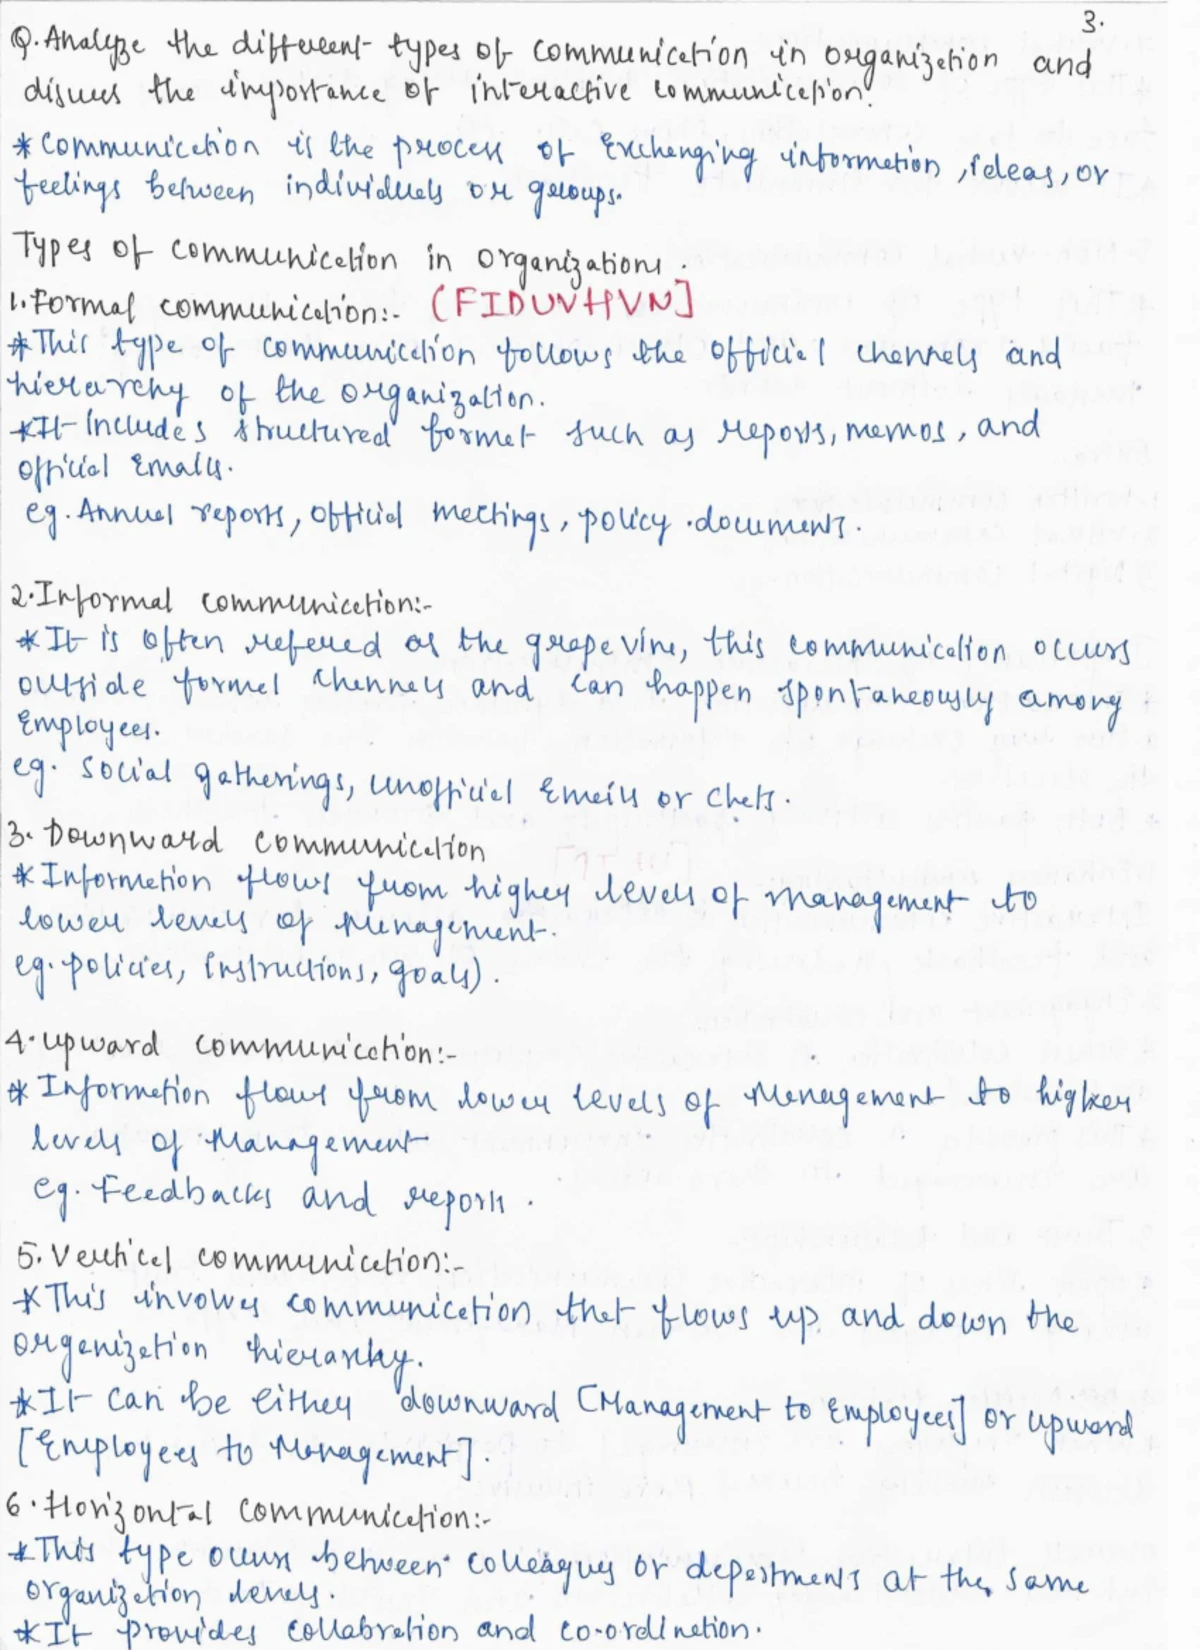 3.
Q. Analyze the different types of communication in organization and
discuss the importance of interactive communication.
* Communication is the process of Exchanging information, ideas, or
feelings between individuals or groups.
Types of communication in organizations.
1. Formal communication:- (FIDUVHVN]
* This type of communication follows the official channels and
hierarchy of the organization.
* It includes structured format such as reports, memos, and
official Emails.
eg. Annual reports, official meetings, policy documents.
2. Informal communication:-
* It is often refered as the grapevine, this communication occurs
outside formal channels and can happen spontaneously among
Employees.
eg. social gatherings, unofficial Emails or chats.
3. Downward communication
* Information flows from higher levels of management to
lower levels of Management.
eg. policies, instructions, goals).
4. Upward communication:-
* Information flows from lower levels of Management to higher
levels of Management
eg. Feedbacks and reports.
5. Vertical communication:-
* This involves communication that flows up and down the
organization hierarchy.
* It can be either downward [Management to Employees] or upward
[Employees to Management].
6. Horizontal communication:-
* This type occurs between colleagues or departments at the same
organization levels.
* It provides collabration and co-ordination.